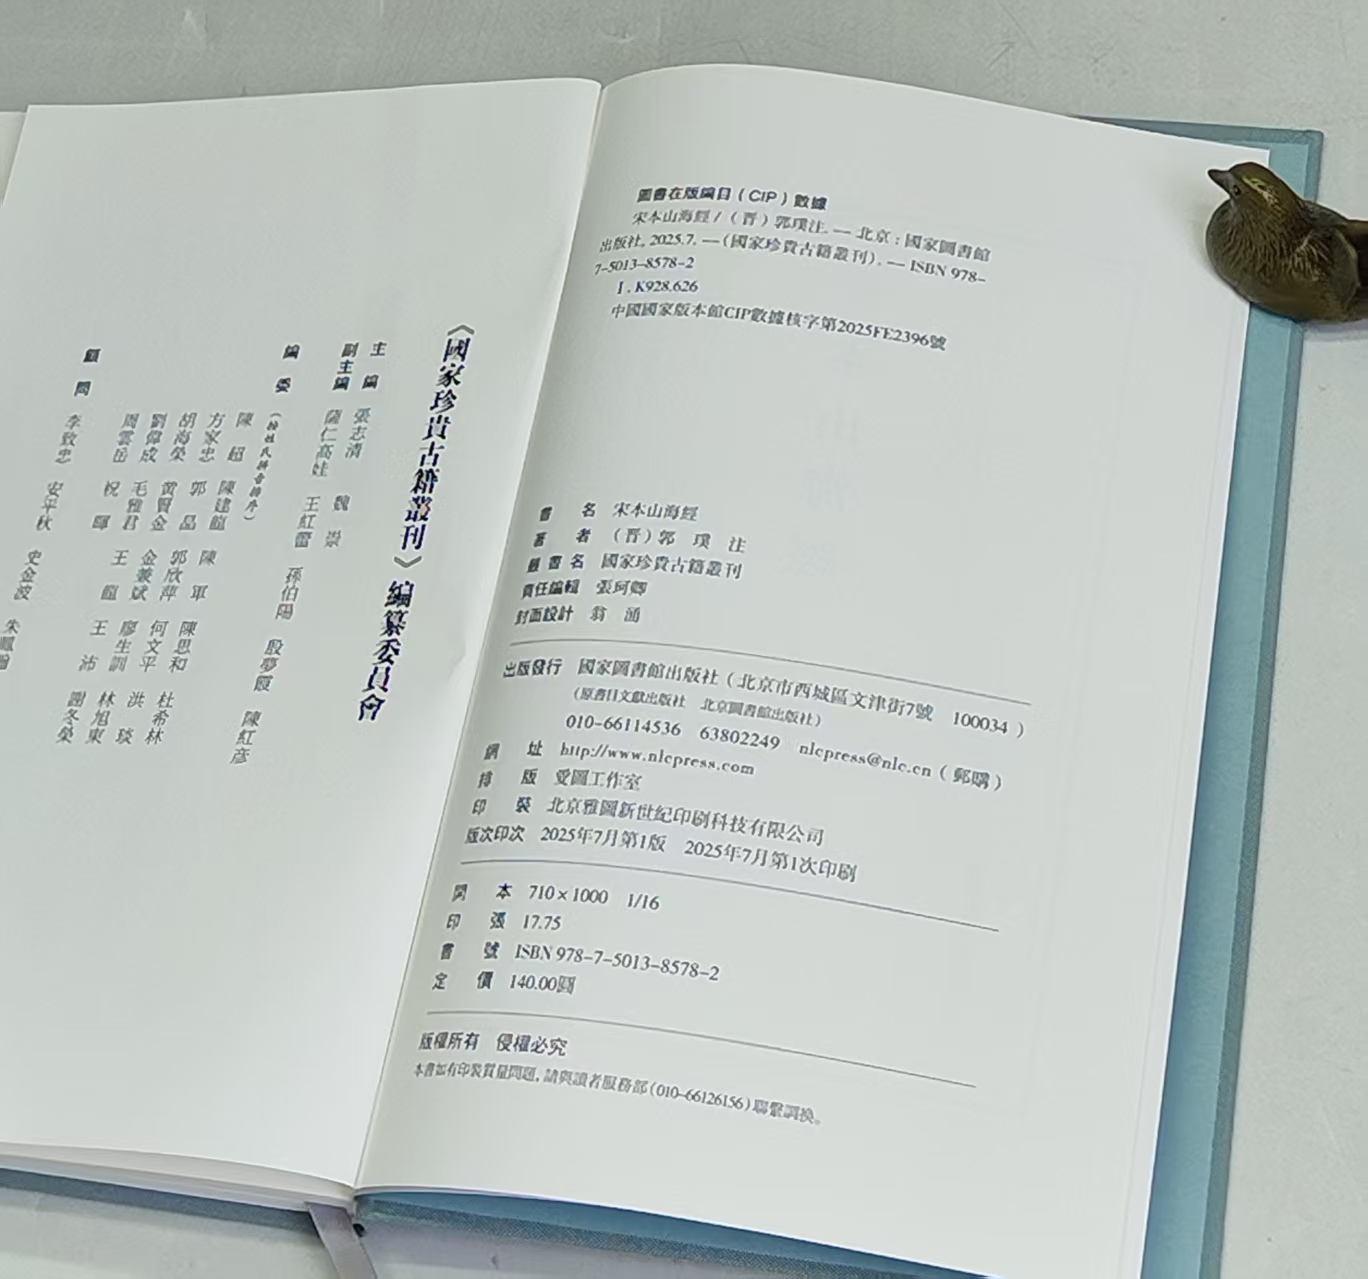 圖書在版編目(CIP)數據
宋本山海經/(晋)郭璞注.—北京:國家圖書館
出版社,2025.7.—(國家珍貴古籍叢刊).—ISBN 978-
7-5013-8578-2
Ⅰ.K928.626
中國國家版本館CIP數據核字第2025FE2396號
書 名 宋本山海經
著 者 (晋)郭 璞 注
叢書名 國家珍貴古籍叢刊
責任編輯 張珂卿
封面設計 翁 涌
出版發行 國家圖書館出版社(北京市西城區文津街7號 100034)
(原書目文獻出版社 北京圖書館出版社)
010-66114536 63802249 nlcpress@nlc.cn(郵購)
網 址 http://www.nlcpress.com
排 版 愛圖工作室
印 裝 北京雅圖新世紀印刷科技有限公司
版次印次 2025年7月第1版 2025年7月第1次印刷
開 本 710×1000 1/16
印 張 17.75
書 號 ISBN 978-7-5013-8578-2
定 價 140.00圓
版權所有 侵權必究
本書如有印裝質量問題,請與讀者服務部(010-66126156)聯繫調換。
《國家珍貴古籍叢刊》編纂委員會
主 編 張志清 魏 崇
副主編 薩仁高娃 王紅蕾 孫伯陽 殷夢霞 陳紅彦
編 委(按姓氏拼音排序)
陳 超 陳建龍 陳 軍 陳思和 杜希林
方家忠 郭 晶 郭欣萍 何文平 洪 琰
胡海榮 黄賢金 金兼斌 廖生訓 林旭東
劉偉成 毛雅君 王 龍 王 沛 謝冬榮
周雲岳 祝 暉
顧 問 李致忠 安平秋 史金波 朱鳳瀚